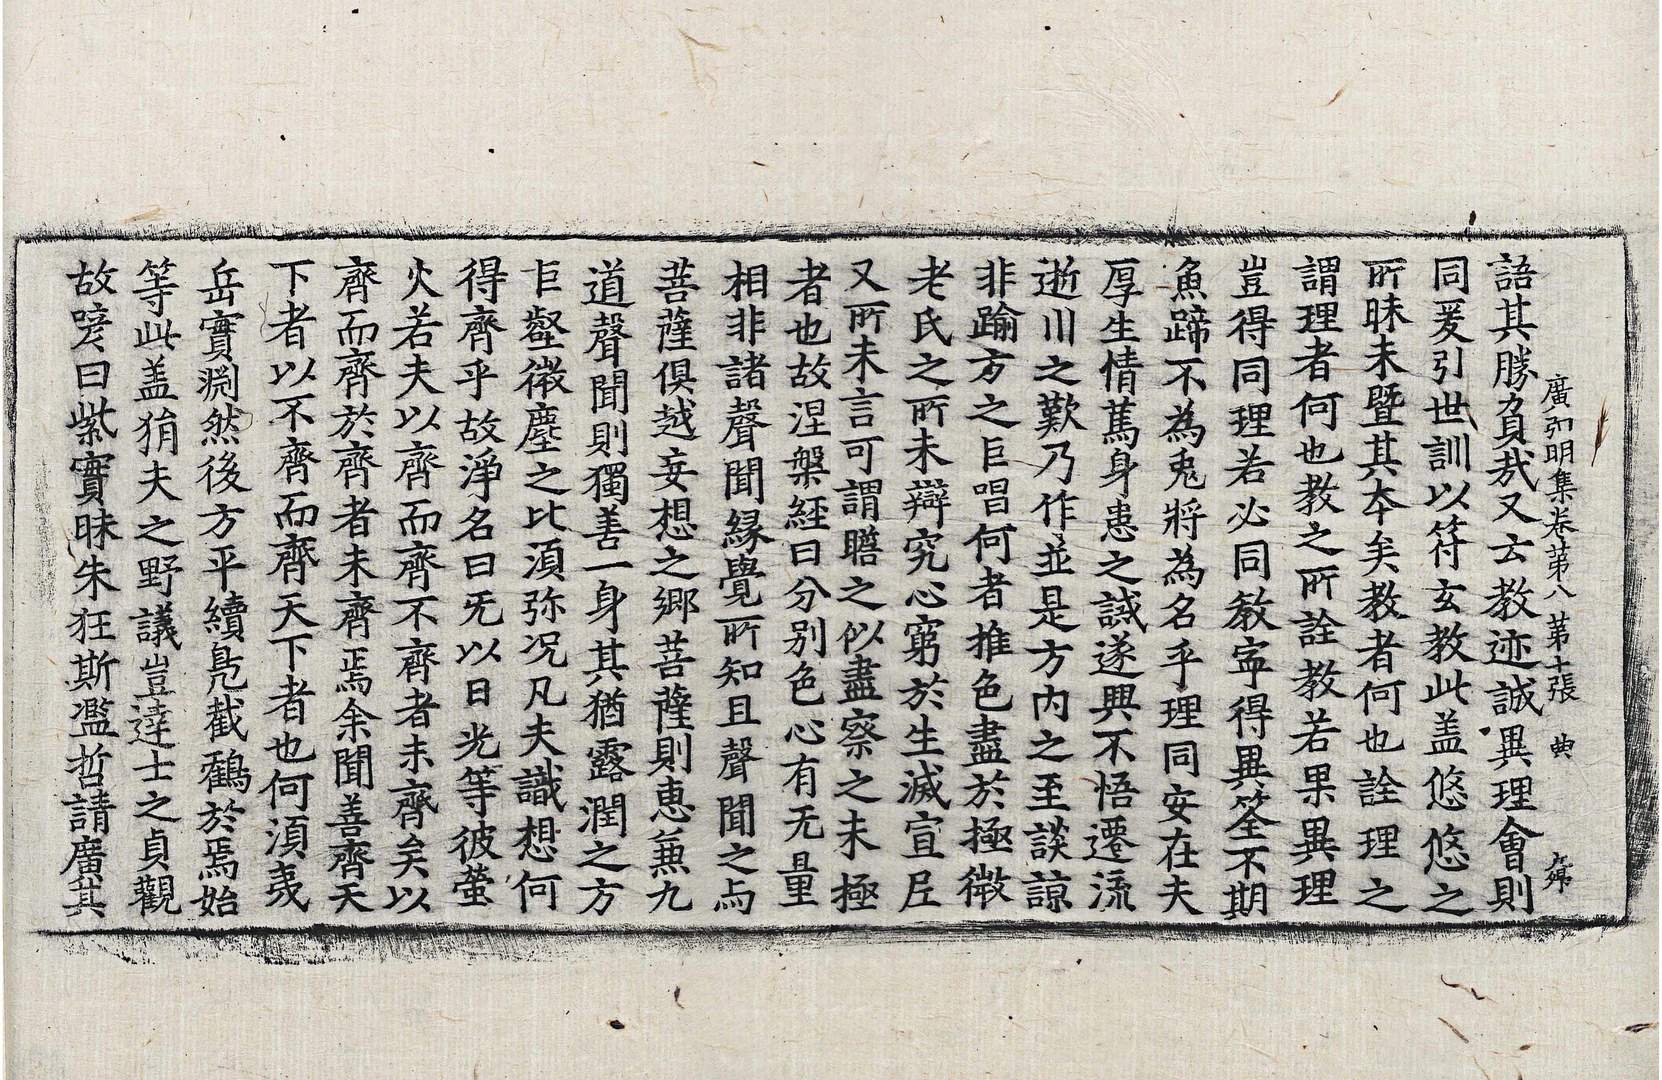 廣弘明集卷第八 第十張 典
語其勝負㦲又云教迹誠異理會則
同爰引世訓以符玄教此盖悠悠之
所昧未暨其夲矣教者何也詮理之
謂理者何也教之所詮教若果異理
豈得同理若必同教寧得異筌不期
魚蹄不為兎將為名乎理同安在夫
厚生情篤身患之誡遂興不悟遷流
逝川之歎乃作並是方內之至談諒
非踰方之巨唱何者推色盡於極微
老氏之所未辯究心窮於生滅宣尼
又所未言可謂瞻之似盡察之未極
者也故涅槃經曰分别色心有无量
相非諸聲聞緣覺所知且聲聞之与
菩薩俱越妄想之鄉菩薩則惠兼九
道聲聞則獨善一身其猶露潤之方
巨壑微塵之比湏弥况凡夫識想何
得齊乎故淨名曰无以日光等彼螢
火若夫以齊而齊不齊者未齊矣以
齊而齊於齊者未齊焉余聞善齊天
下者以不齊而齊天下者也何湏夷
岳實渊然後方平續鳬截鶴於焉始
等此盖狷夫之野議豈達士之貞觀
故諺曰紫實昧朱狂斯濫哲請廣其